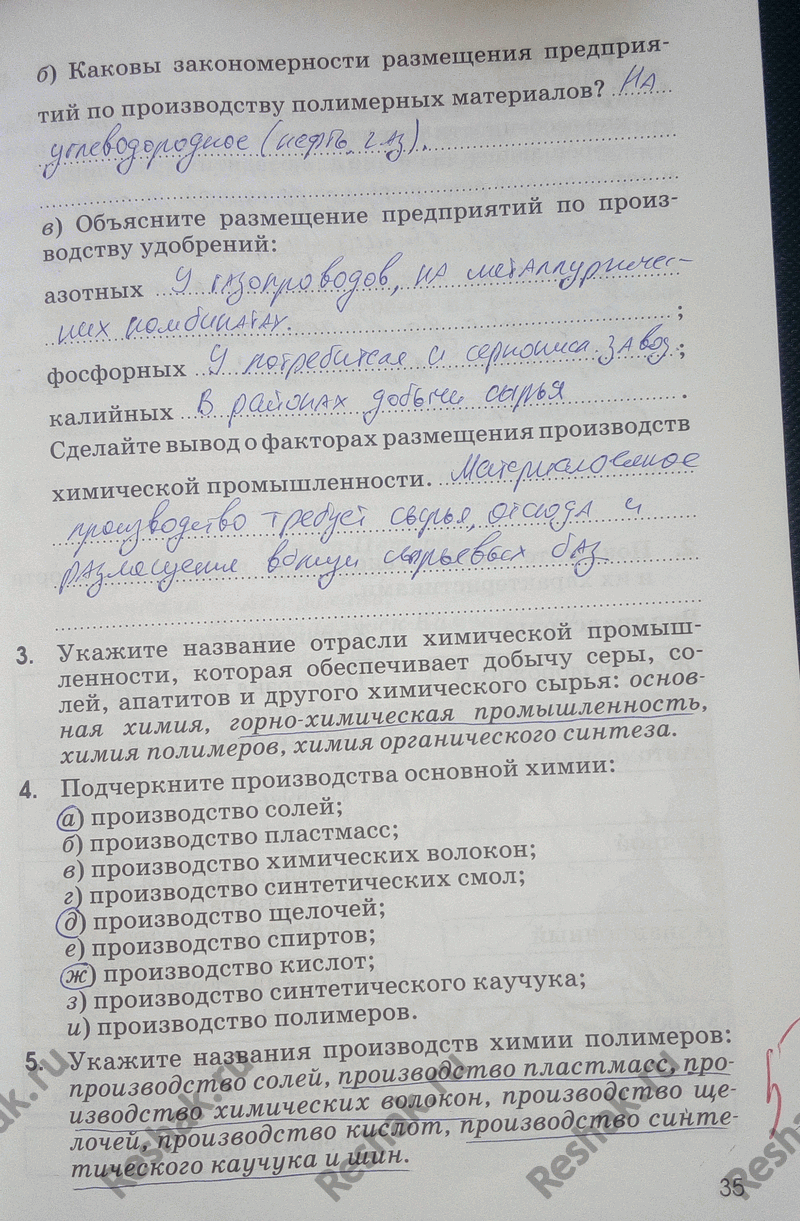 б) Каковы закономерности размещения предприя-
тий по производству полимерных материалов? НА
углеводородное (нефть, газ).
в) Объясните размещение предприятий по произ-
водству удобрений:
азотных У газопроводов, на металлургичес-
ких комбинатах. ;
фосфорных У потребителя и сернокисл. завод ;
калийных В районах добычи сырья .
Сделайте вывод о факторах размещения производств
химической промышленности. Материалоемкое
производство требует сырья, отсюда и
размещения вблизи сырьевых баз.
3. Укажите название отрасли химической промыш-
ленности, которая обеспечивает добычу серы, со-
лей, апатитов и другого химического сырья: основ-
ная химия, горно-химическая промышленность,
химия полимеров, химия органического синтеза.
4. Подчеркните производства основной химии:
а) производство солей;
б) производство пластмасс;
в) производство химических волокон;
г) производство синтетических смол;
д) производство щелочей;
е) производство спиртов;
ж) производство кислот;
з) производство синтетического каучука;
и) производство полимеров.
5. Укажите названия производств химии полимеров:
производство солей, производство пластмасс, про-
изводство химических волокон, производство ще-
лочей, производство кислот, производство синте-
тического каучука и шин.
35
ak.ru
Reshak.ru
Reshak.ru
Reshak.ru
Resha